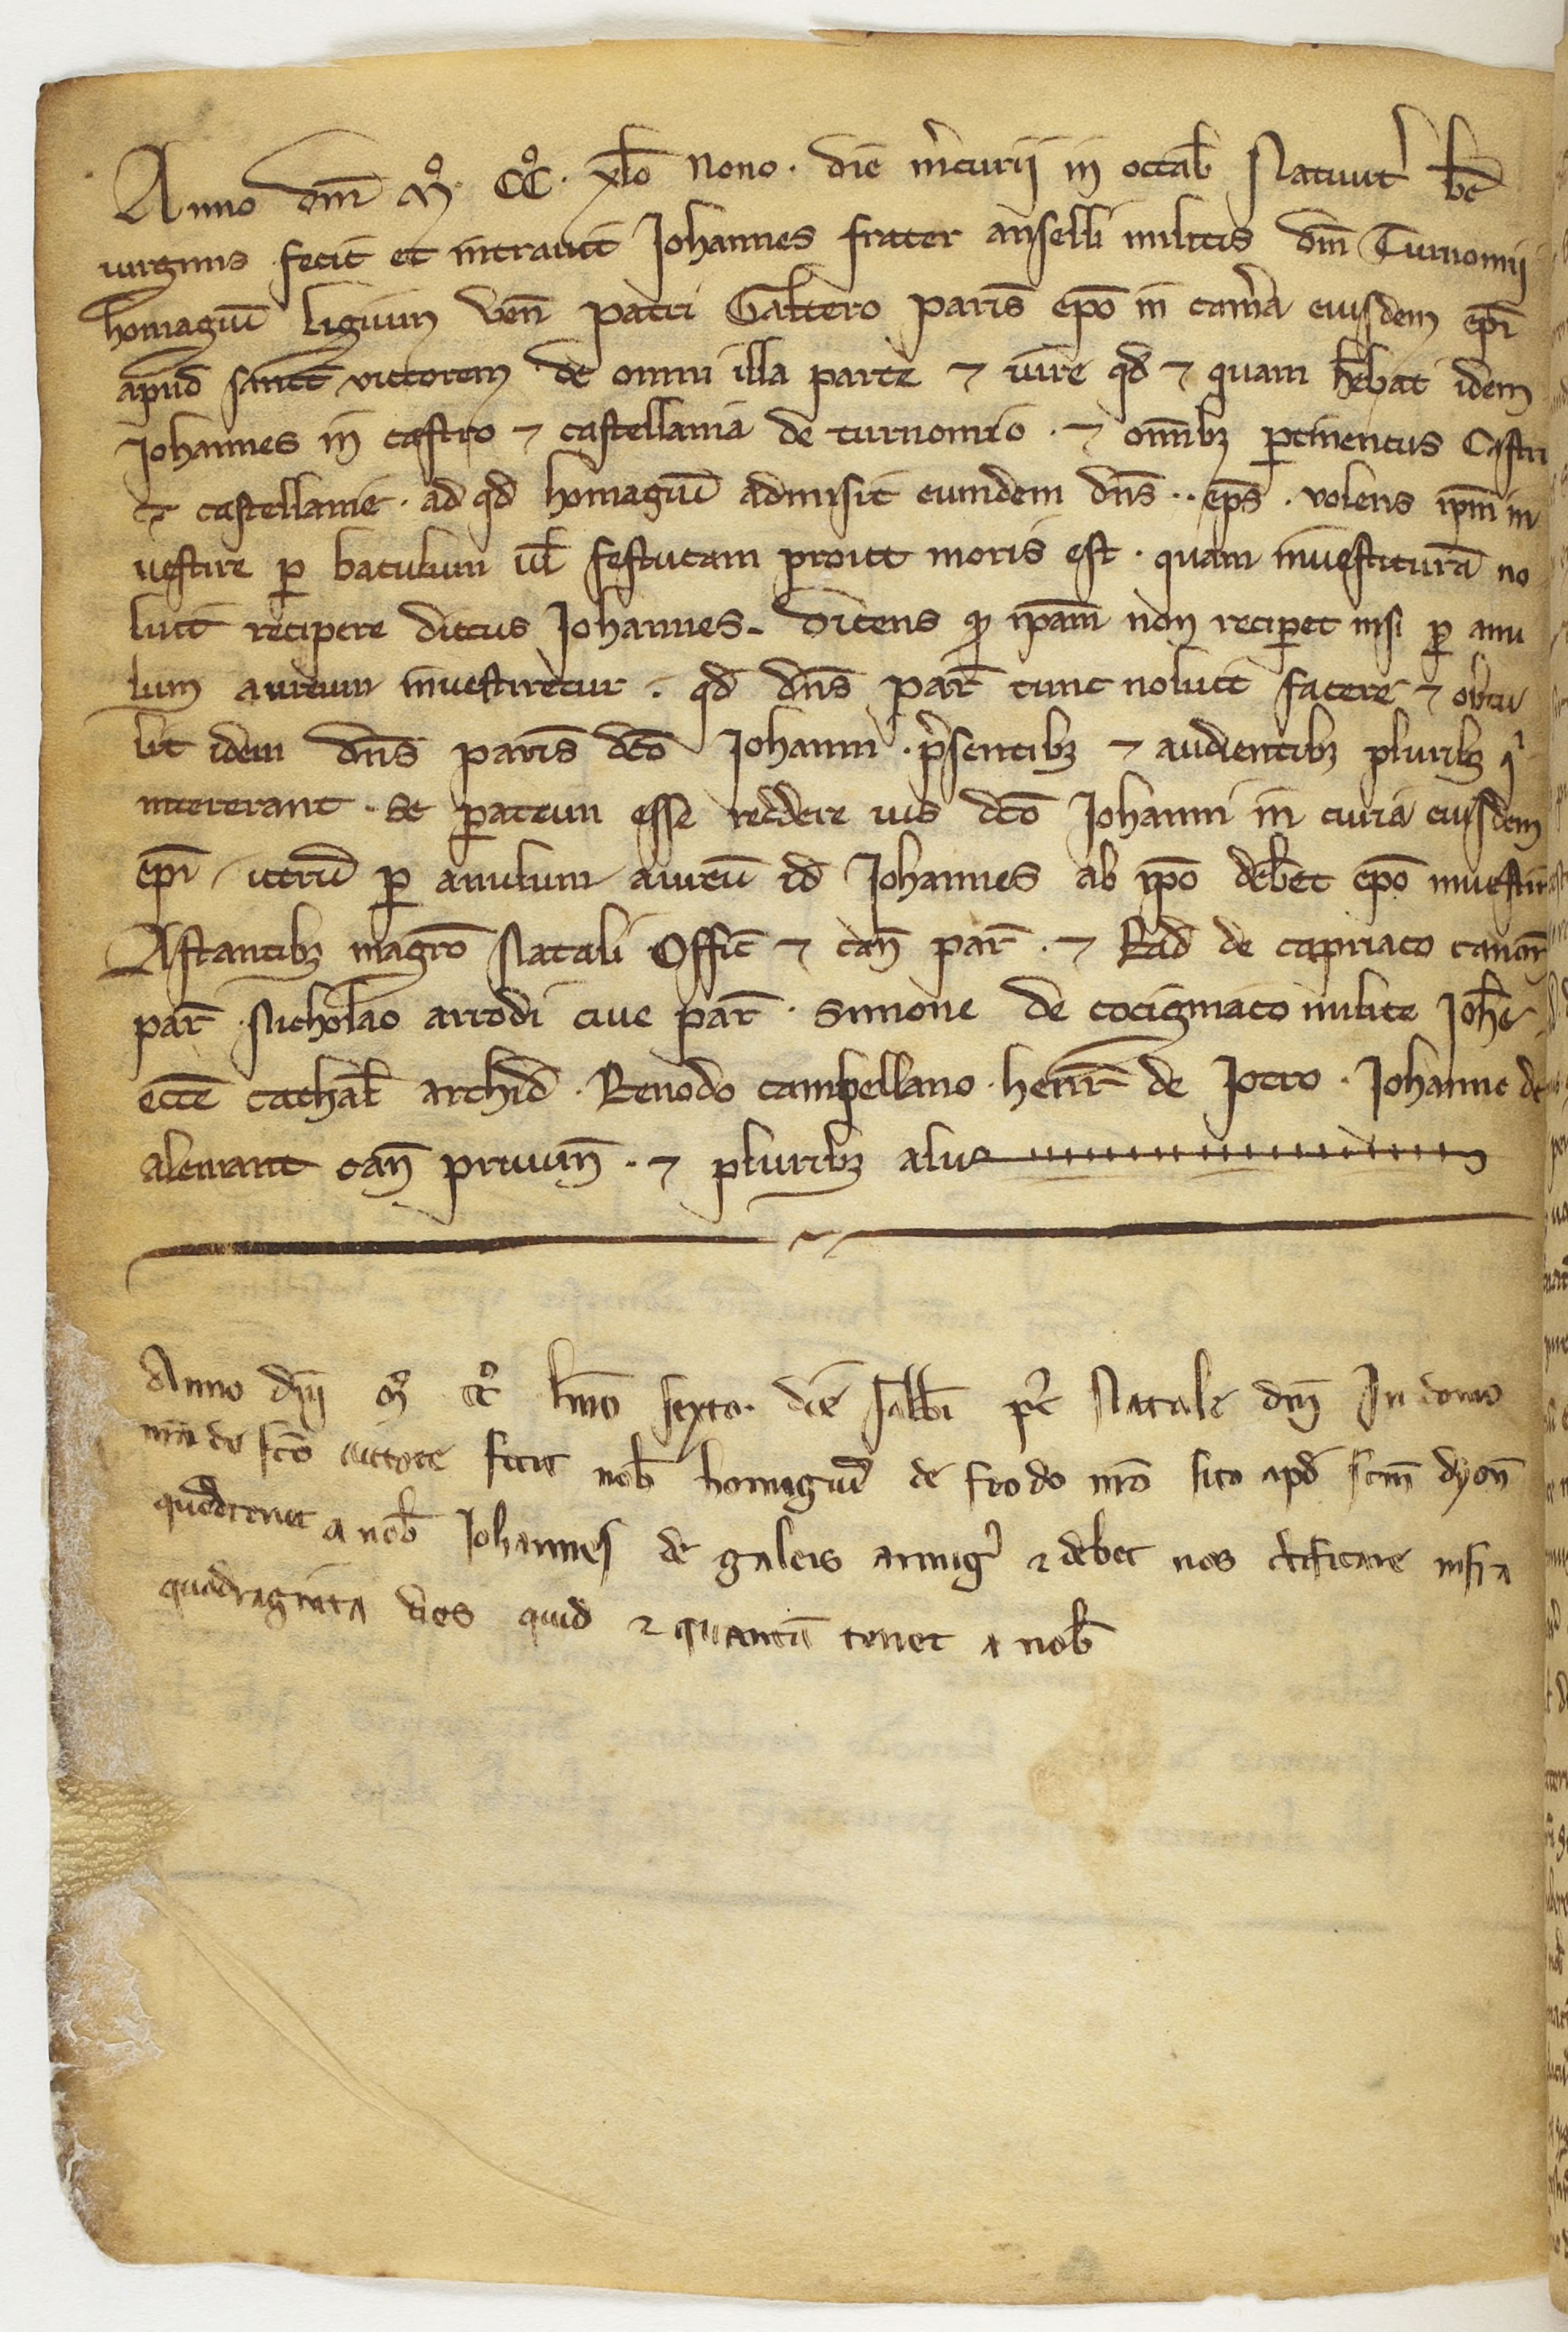 Anno dnī Mº. CCº. xlo nono. die m̄curii in octab̄ Natiuit̄ be
uirginis fecit et intrauit Johannes frater anselli militis dnī Turnomii
homagiū ligium uen̄ patri Galtero paris̄ epō in cam̄a eiusdem epī
apud sanct̄ victorem de omni illa parte ⁊ iure qd̄ ⁊ quam hēbat idem
Johannes in castro ⁊ castellania de turnomio. ⁊ omībꝫ ꝑtinentiis Castri
et castellanie. ad qd̄ homagiū admisit eumdem dn̄s.. ep̄s. volens ip̄m in
uestire ꝑ baculum ul̄ festucam prout moris est. quam inuestiturā no
luit recipere dictus Johannes. dicens qᷓ ip̄am non reciꝑet nisi ꝑ anu
lum aureum inuestiretur. qd̄ dn̄s par̄ tunc noluit facere ⁊ obtu
lit idem dn̄s paris̄ dcō Johanni. p̄sentibꝫ ⁊ audientibꝫ pluribꝫ qⁱ
intererant. se ꝑatum esse reddere ius dcō Johanni in curia eiusdem
epī. utrū ꝑ anulum aureū id̄ Johannes ab ipō deb̄et epō inuestir̄
Astantibꝫ magrō Natali Offic̄ ⁊ can̄ par̄. ⁊ Rad̄ de capriaco canon̄
par̄. Nicholao arrodi ciue par̄. Simone de cocigniaco milite Joh̄e
ecc̄e cathal̄ archid̄. Renodo cambellano. henr̄ de Jotro. Johanne de
alemant can̄ pruuin̄. ⁊ pluribꝫ aliis
Anno dnī Mº CCº lmō sexto. die sabbī pᵗ Natale dnī In domo
nr̄a de scō uictore fecit nob̄ homagiū de feodo nrō sito apd̄ scm̄ dyon̄
quod tenet a nob̄ Johannes de galeis armigˀ ⁊ debet nos c̄tificare infra
quadraginta dies quid ⁊ quantū tenet a nob̄